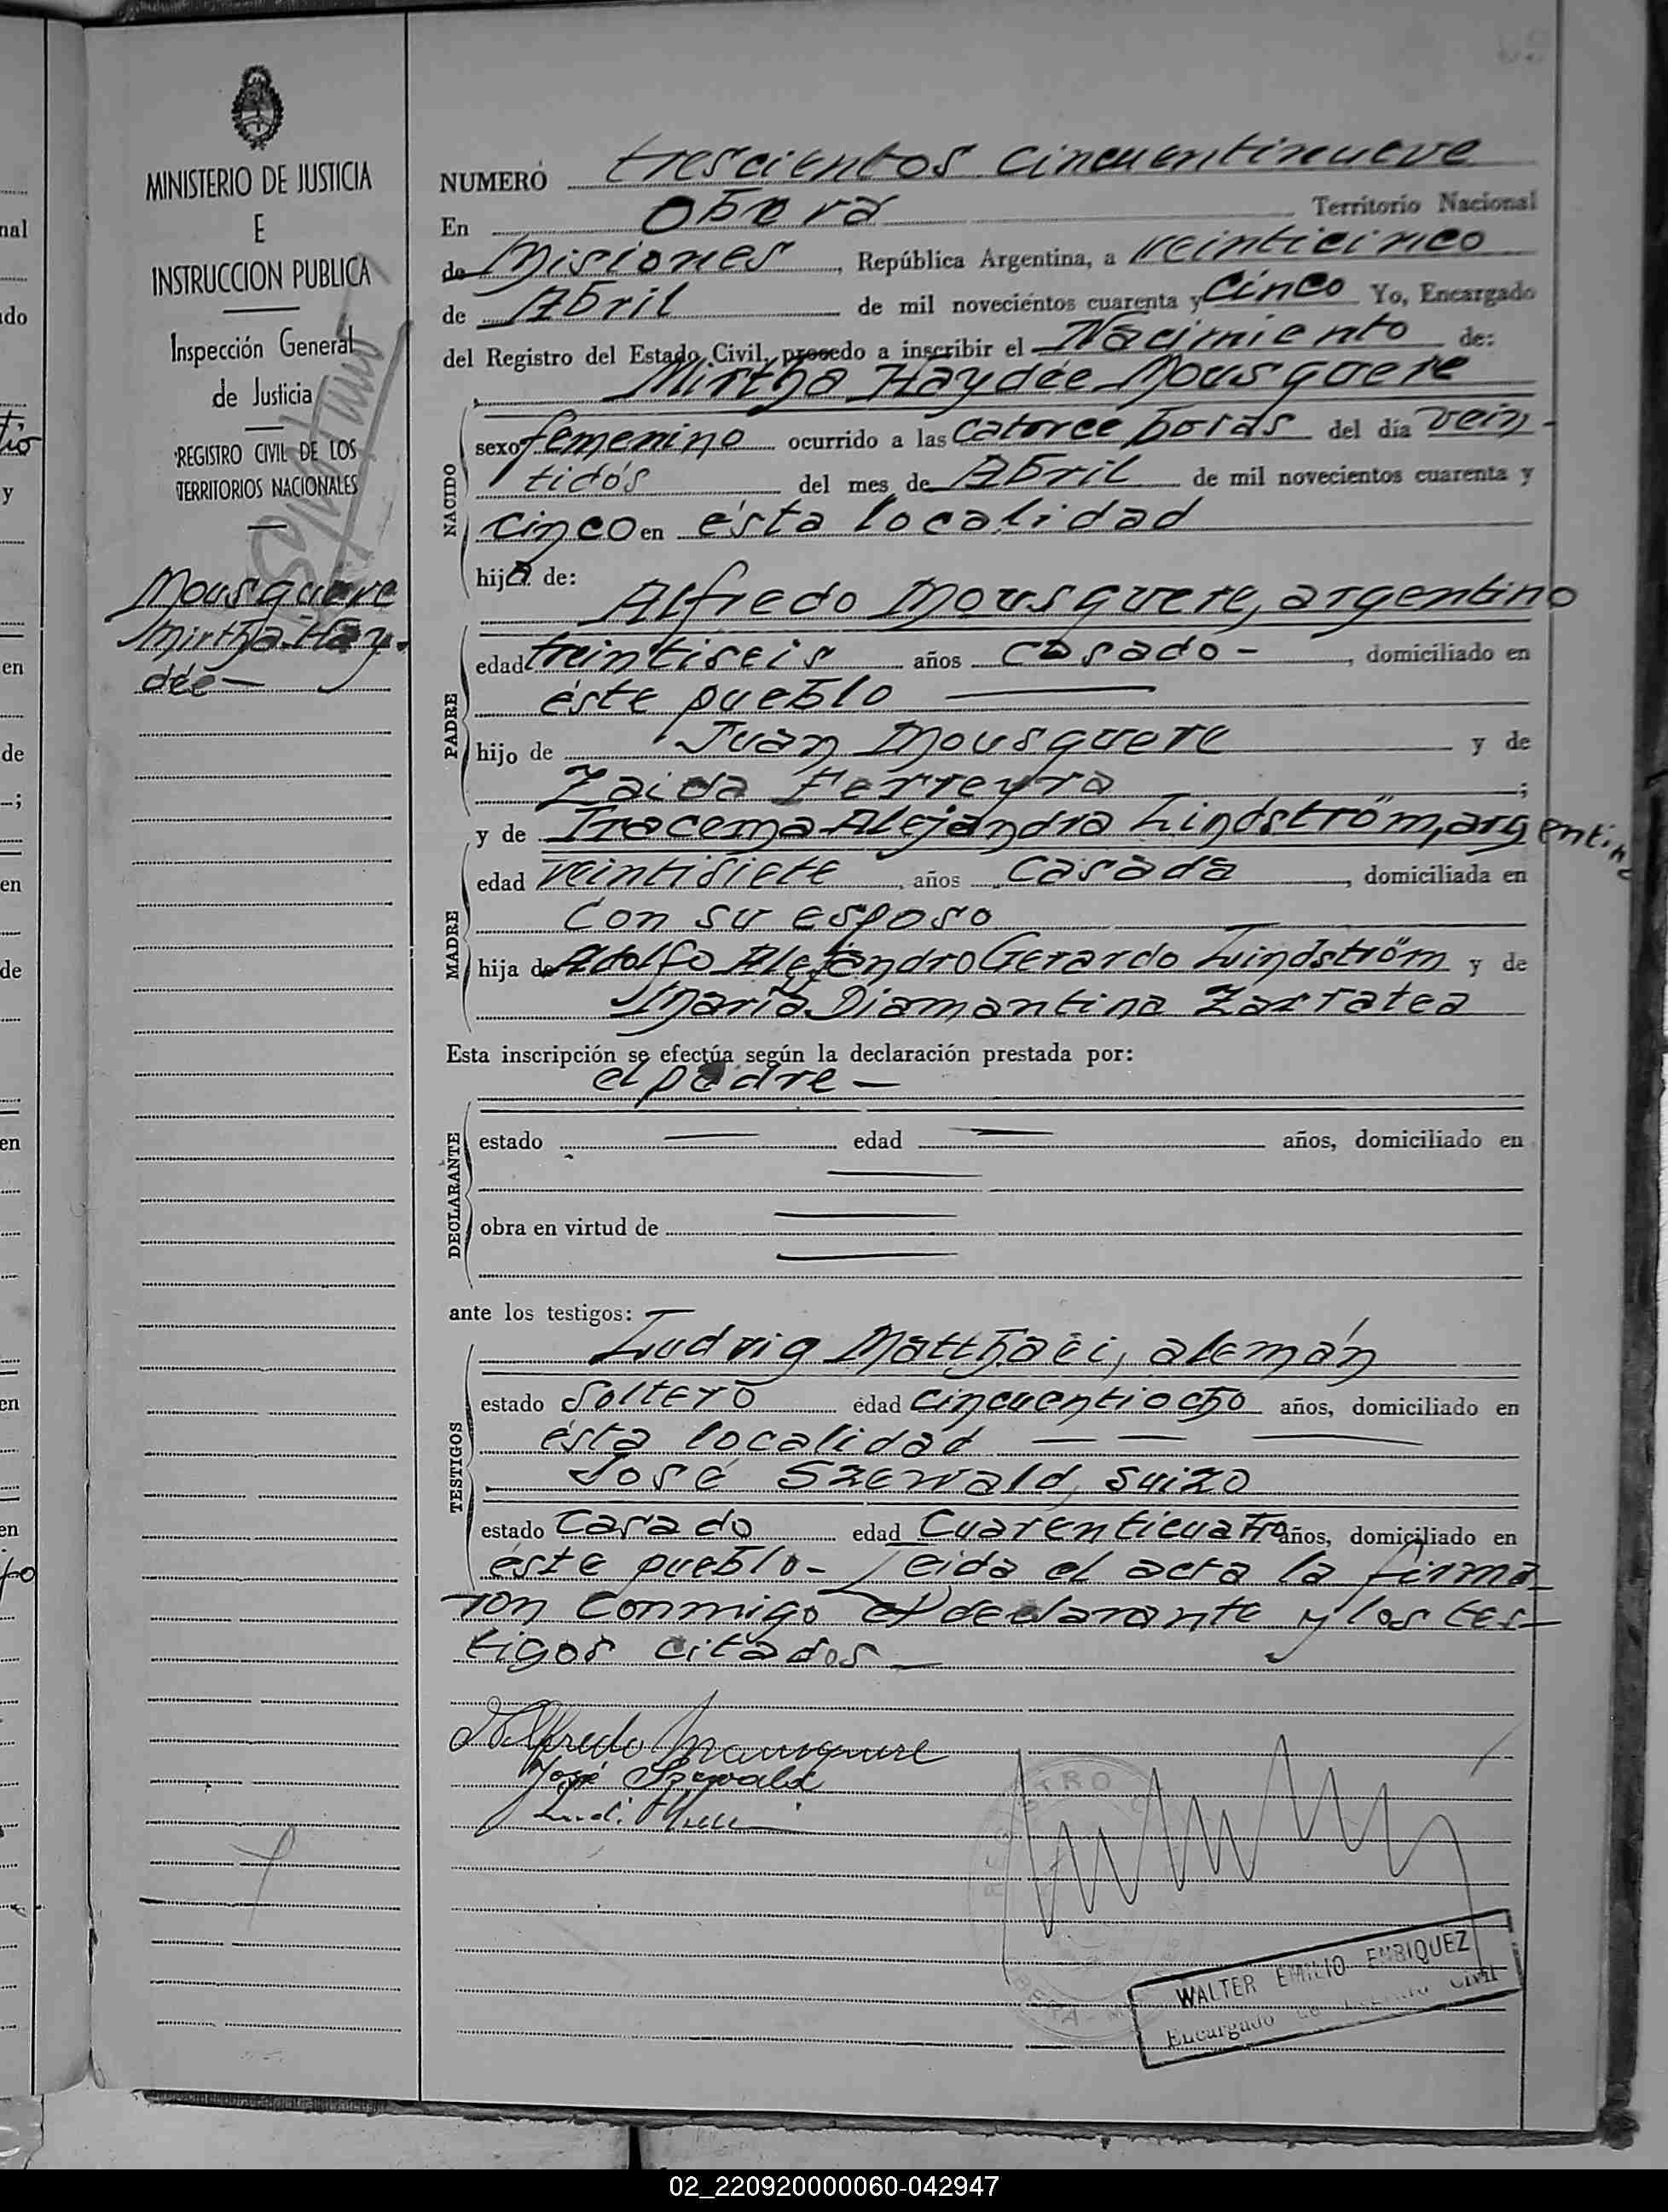 MINISTERIO DE JUSTICIA
E
INSTRUCCION PUBLICA
Inspección General
de Justicia
REGISTRO CIVIL DE LOS
TERRITORIOS NACIONALES
Mousquere
Mirtha Hay-
dée —
NUMERO trescientos cincuentinueve
En Oberá Territorio Nacional
de Misiones, República Argentina, a veinticinco
de Abril de mil novecientos cuarenta y Cinco Yo, Encargado
del Registro del Estado Civil, procedo a inscribir el Nacimiento de:
Mirtha Haydée Mousquere
NACIDO
sexo femenino ocurrido a las catorce horas del día vein-
tidós del mes de Abril de mil novecientos cuarenta y
cinco en ésta localidad
hija de:
Alfredo Mousquere, argentino
PADRE
edad treintiseis años casado -, domiciliado en
éste pueblo —
hijo de Juan Mousquere y de
Zaida Ferreyra ;
y de Iracema Alejandra Lindström, argentina
MADRE
edad veintisiete años casada, domiciliada en
con su esposo
hija de Adolfo Alejandro Gerardo Lindström y de
María Diamantina Zarratea
Esta inscripción se efectúa según la declaración prestada por:
el padre —
DECLARANTE
estado — edad — años, domiciliado en
obra en virtud de
ante los testigos: —
Ludvig Matthaei, alemán
TESTIGOS
estado Soltero edad cincuentiocho años, domiciliado en
ésta localidad — — —
José Szewald, suizo
estado Casado edad Cuarenticuatro años, domiciliado en
éste pueblo - Leida el acta la firma-
ron conmigo el declarante y los tes-
tigos citados —
Alfredo Mousquere
José Szewald
WALTER EMILIO ENRIQUEZ
Encargado Civil
02_220920000060-042947